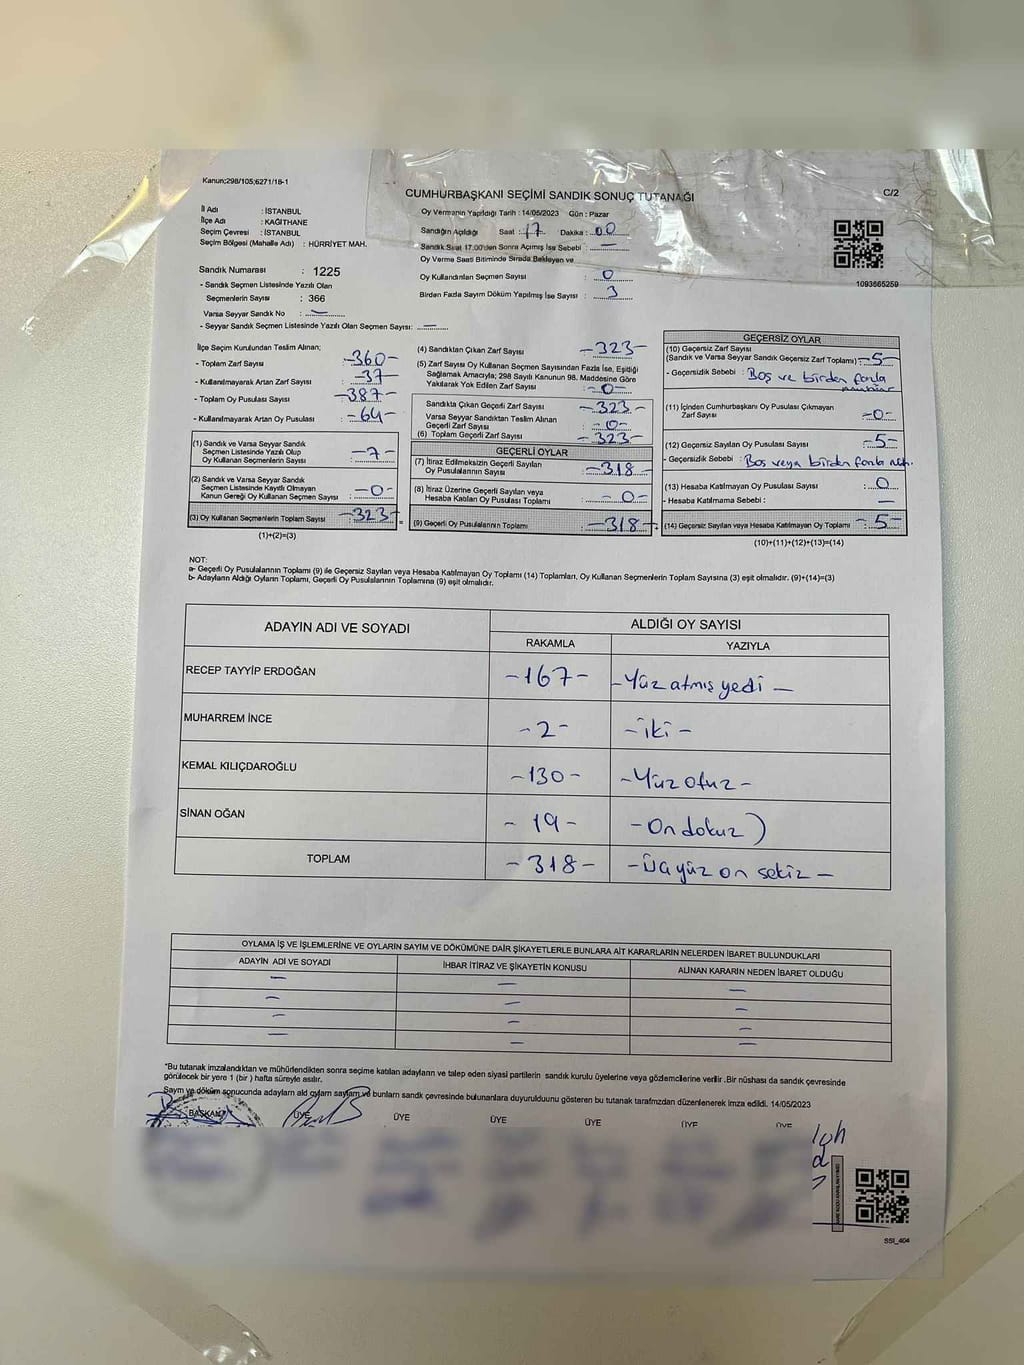 Kanun;298/105;6271/18-1
CUMHURBAŞKANI SEÇİMİ SANDIK SONUÇ TUTANAĞI
C/2
İl Adı : İSTANBUL
İlçe Adı : KAĞITHANE
Seçim Çevresi : İSTANBUL
Seçim Bölgesi (Mahalle Adı) : HÜRRİYET MAH.
Sandık Numarası : 1225
- Sandık Seçmen Listesinde Yazılı Olan
Seçmenlerin Sayısı : 366
Varsa Seyyar Sandık No : —
- Seyyar Sandık Seçmen Listesinde Yazılı Olan Seçmen Sayısı: —
Oy Vermenin Yapıldığı Tarih : 14/05/2023 Gün : Pazar
Sandığın Açıldığı Saat : 17 Dakika : 00
Sandık Saat 17.00'den Sonra Açımış İse Sebebi : —
Oy Verme Saati Bitiminde Sırada Bekleyen ve
Oy Kullandırılan Seçmen Sayısı : 0
Birden Fazla Sayım Döküm Yapılmış İse Sayısı : 3
1093665259
İlçe Seçim Kurulundan Teslim Alınan;
- Toplam Zarf Sayısı : -360-
- Kullanılmayarak Artan Zarf Sayısı : -37-
- Toplam Oy Pusulası Sayısı : -387-
- Kullanılmayarak Artan Oy Pusulası : -64-
(1) Sandık ve Varsa Seyyar Sandık
Seçmen Listesinde Yazılı Olup
Oy Kullanan Seçmenlerin Sayısı : -7-
(2) Sandık ve Varsa Seyyar Sandık
Seçmen Listesinde Kayıtlı Olmayan
Kanun Gereği Oy Kullanan Seçmen Sayısı : -0-
(3) Oy Kullanan Seçmenlerin Toplam Sayısı : -323-
(1)+(2)=(3)
(4) Sandıktan Çıkan Zarf Sayısı : -323-
(5) Zarf Sayısı Oy Kullanan Seçmen Sayısından Fazla İse, Eşitliği
Sağlamak Amacıyla; 298 Sayılı Kanunun 98. Maddesine Göre
Yakılarak Yok Edilen Zarf Sayısı : -0-
Sandıkta Çıkan Geçerli Zarf Sayısı : -323-
Varsa Seyyar Sandıktan Teslim Alınan
Geçerli Zarf Sayısı : -0-
(6) Toplam Geçerli Zarf Sayısı : -323-
GEÇERLİ OYLAR
(7) İtiraz Edilmeksizin Geçerli Sayılan
Oy Pusulasının Sayısı : -318-
(8) İtiraz Üzerine Geçerli Sayılan veya
Hesaba Katılan Oy Pusulası Toplamı : -0-
(9) Geçerli Oy Pusulalarının Toplamı : -318-
GEÇERSİZ OYLAR
(10) Geçersiz Zarf Sayısı
(Sandık ve Varsa Seyyar Sandık Geçersiz Zarf Toplamı) : -5-
- Geçersizlik Sebebi : Boş ve birden fazla
(11) İçinden Cumhurbaşkanı Oy Pusulası Çıkmayan
Zarf Sayısı : -0-
(12) Geçersiz Sayılan Oy Pusulası Sayısı : -5-
- Geçersizlik Sebebi : Boş veya birden fazla
(13) Hesaba Katılmayan Oy Pusulası Sayısı : 0
- Hesaba Katılmama Sebebi : —
(14) Geçersiz Sayılan veya Hesaba Katılmayan Oy Toplamı : -5-
(10)+(11)+(12)+(13)=(14)
NOT:
a- Geçerli Oy Pusulalarının Toplamı (9) ile Geçersiz Sayılan veya Hesaba Katılmayan Oy Toplamı (14) Toplamları, Oy Kullanan Seçmenlerin Toplam Sayısına (3) eşit olmalıdır. (9)+(14)=(3)
b- Adayların Aldığı Oyların Toplamı, Geçerli Oy Pusulalarının Toplamına (9) eşit olmalıdır.
ADAYIN ADI VE SOYADI
ALDIĞI OY SAYISI
RAKAMLA YAZIYLA
RECEP TAYYİP ERDOĞAN -167- -Yüz atmış yedi -
MUHARREM İNCE -2- -iki-
KEMAL KILIÇDAROĞLU -130- -Yüz otuz-
SİNAN OĞAN -19- -On dokuz)
TOPLAM -318- -Üçyüz on sekiz -
OYLAMA İŞ VE İŞLEMLERİNE VE OYLARIN SAYIM VE DÖKÜMÜNE DAİR ŞİKAYETLERLE BUNLARA AİT KARARLARIN NELERDEN İBARET BULUNDUKLARI
ADAYIN ADI VE SOYADI İHBAR İTİRAZ VE ŞİKAYETİN KONUSU ALINAN KARARIN NEDEN İBARET OLDUĞU
— — —
— — —
— — —
— — —
*Bu tutanak imzalandıktan ve mühürlendikten sonra seçime katılan adayların ve talep eden siyasi partilerin sandık kurulu üyelerine veya gözlemcilerine verilir .Bir nüshası da sandık çevresinde
görülecek bir yere 1 (bir ) hafta süreyle asılır.
Sayım ve döküm sonucunda adayların ald oyların sayılam ve bunların sandk çevresinde bulunanlara duyurulduunu gösteren bu tutanak tarafmzdan düzenlenerek imza edildi. 14/05/2023
BAŞKAN ÜYE ÜYE ÜYE ÜYE ÜYE ÜYE
SSI_404